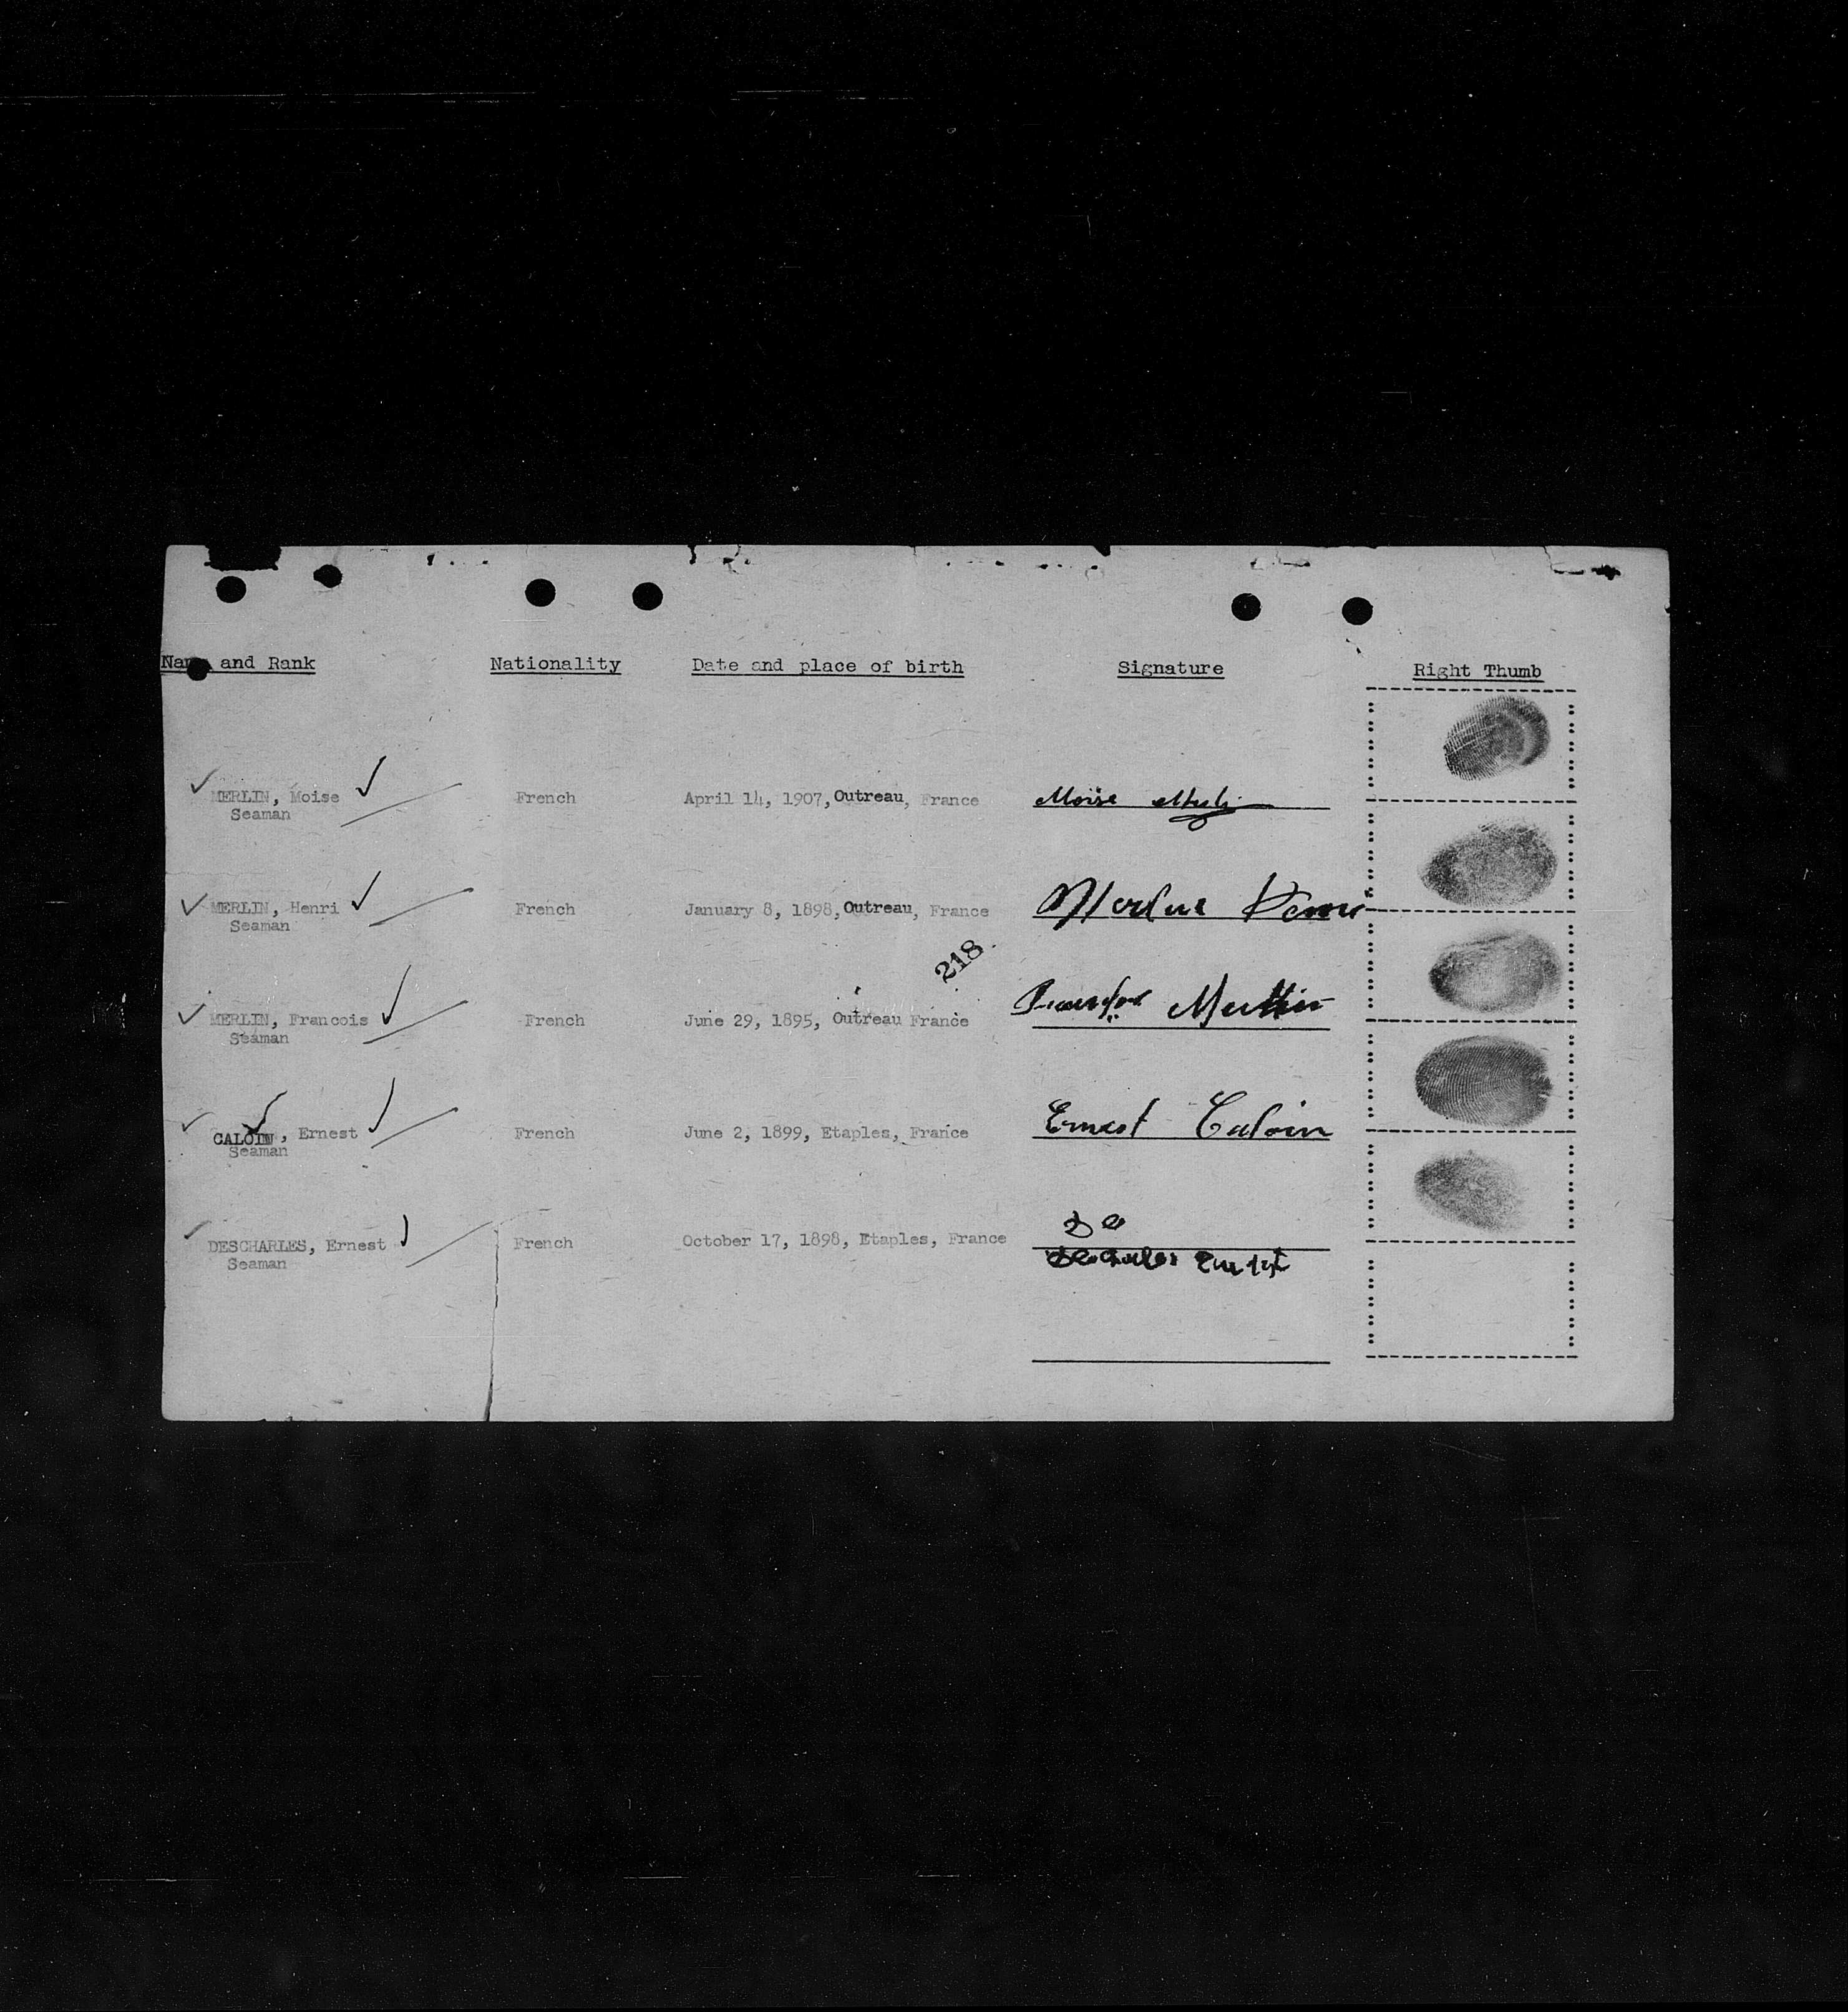 Name and Rank Nationality Date and place of birth Signature Right Thumb
MERLIN, Moise French April 14, 1907, Outreau, France Moïse Merlin
Seaman
MERLIN, Henri French January 8, 1898, Outreau, France Merlin Henri
Seaman
218
MERLIN, Francois French June 29, 1895, Outreau France Merlin
Seaman
CALOIN, Ernest French June 2, 1899, Etaples, France Ernest Caloin
Seaman
De
DESCHARLES, Ernest French October 17, 1898, Etaples, France
Seaman Descharles Ernest